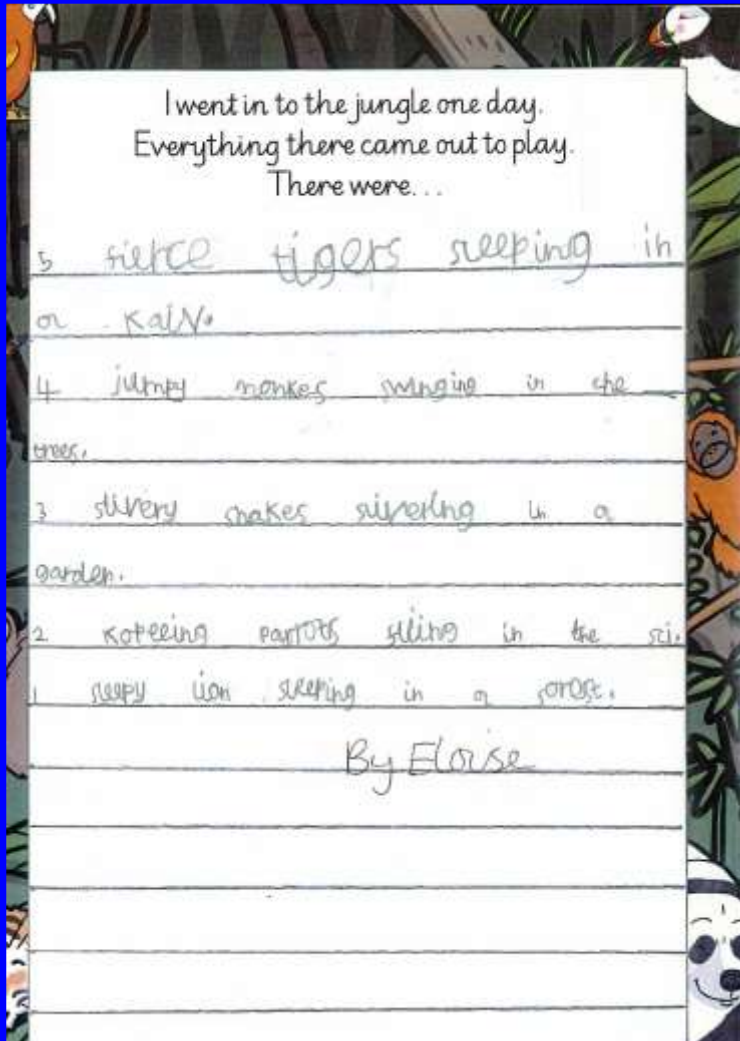 I went in to the jungle one day.
Everything there came out to play.
There were...
5 fierce tigers sleeping in
a
4 jumpy monkes swinging in the
trees.
3 slivery snakes slivering in a
garden.
2 parrots in the sci.
1 sleepy lion sleeping in a forest.
By Eloise